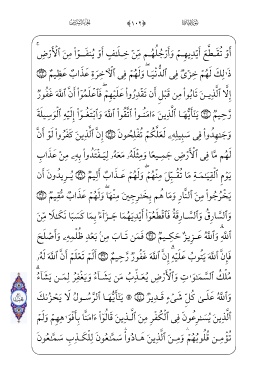 ﴿١٠٩﴾
أَوْ تُقَطَّعَ أَيْدِيهِمْ وَأَرْجُلُهُم مِّنْ خِلَٰفٍ أَوْ يُنفَوْا۟ مِنَ ٱلْأَرْضِ
ذَٰلِكَ لَهُمْ خِزْىٌ فِى ٱلدُّنْيَا وَلَهُمْ فِى ٱلْءَاخِرَةِ عَذَابٌ عَظِيمٌ
إِلَّا ٱلَّذِينَ تَابُوا۟ مِن قَبْلِ أَن تَقْدِرُوا۟ عَلَيْهِمْ فَٱعْلَمُوٓا۟ أَنَّ ٱللَّهَ غَفُورٌ
رَّحِيمٌ يَٰٓأَيُّهَا ٱلَّذِينَ ءَامَنُوا۟ ٱتَّقُوا۟ ٱللَّهَ وَٱبْتَغُوٓا۟ إِلَيْهِ ٱلْوَسِيلَةَ
وَجَٰهِدُوا۟ فِى سَبِيلِهِۦ لَعَلَّكُمْ تُفْلِحُونَ إِنَّ ٱلَّذِينَ كَفَرُوا۟ لَوْ أَنَّ
لَهُم مَّا فِى ٱلْأَرْضِ جَمِيعًا وَمِثْلَهُۥ مَعَهُۥ لِيَفْتَدُوا۟ بِهِۦ مِنْ عَذَابِ
يَوْمِ ٱلْقِيَٰمَةِ مَا تُقُبِّلَ مِنْهُمْ وَلَهُمْ عَذَابٌ أَلِيمٌ يُرِيدُونَ أَن
يَخْرُجُوا۟ مِنَ ٱلنَّارِ وَمَا هُم بِخَٰرِجِينَ مِنْهَا وَلَهُمْ عَذَابٌ مُّقِيمٌ
وَٱلسَّارِقُ وَٱلسَّارِقَةُ فَٱقْطَعُوٓا۟ أَيْدِيَهُمَا جَزَآءًۢ بِمَا كَسَبَا نَكَٰلًا مِّنَ
ٱللَّهِ وَٱللَّهُ عَزِيزٌ حَكِيمٌ فَمَن تَابَ مِنۢ بَعْدِ ظُلْمِهِۦ وَأَصْلَحَ
فَإِنَّ ٱللَّهَ يَتُوبُ عَلَيْهِ إِنَّ ٱللَّهَ غَفُورٌ رَّحِيمٌ أَلَمْ تَعْلَمْ أَنَّ ٱللَّهَ لَهُۥ
مُلْكُ ٱلسَّمَٰوَٰتِ وَٱلْأَرْضِ يُعَذِّبُ مَن يَشَآءُ وَيَغْفِرُ لِمَن يَشَآءُ
وَٱللَّهُ عَلَىٰ كُلِّ شَىْءٍ قَدِيرٌ يَٰٓأَيُّهَا ٱلرَّسُولُ لَا يَحْزُنكَ
ٱلَّذِينَ يُسَٰرِعُونَ فِى ٱلْكُفْرِ مِنَ ٱلَّذِينَ قَالُوٓا۟ ءَامَنَّا بِأَفْوَٰهِهِمْ وَلَمْ
تُؤْمِن قُلُوبُهُمْ وَمِنَ ٱلَّذِينَ هَادُوا۟ سَمَّٰعُونَ لِلْكَذِبِ سَمَّٰعُونَ